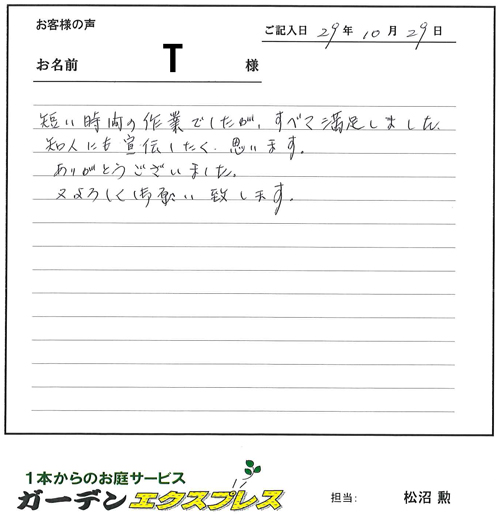 お客様の声
ご記入日 29年10月29日
お名前 T 様
短い時間の作業でしたが、すべて満足しました。
知人にも宣伝したく思います。
ありがとうございました。
又よろしくお願い致します。
1本からのお庭サービス
ガーデンエクスプレス
担当: 松沼 勲